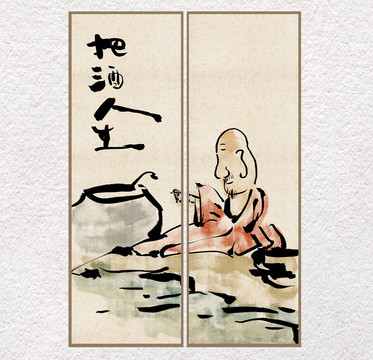 把
酒
人
生